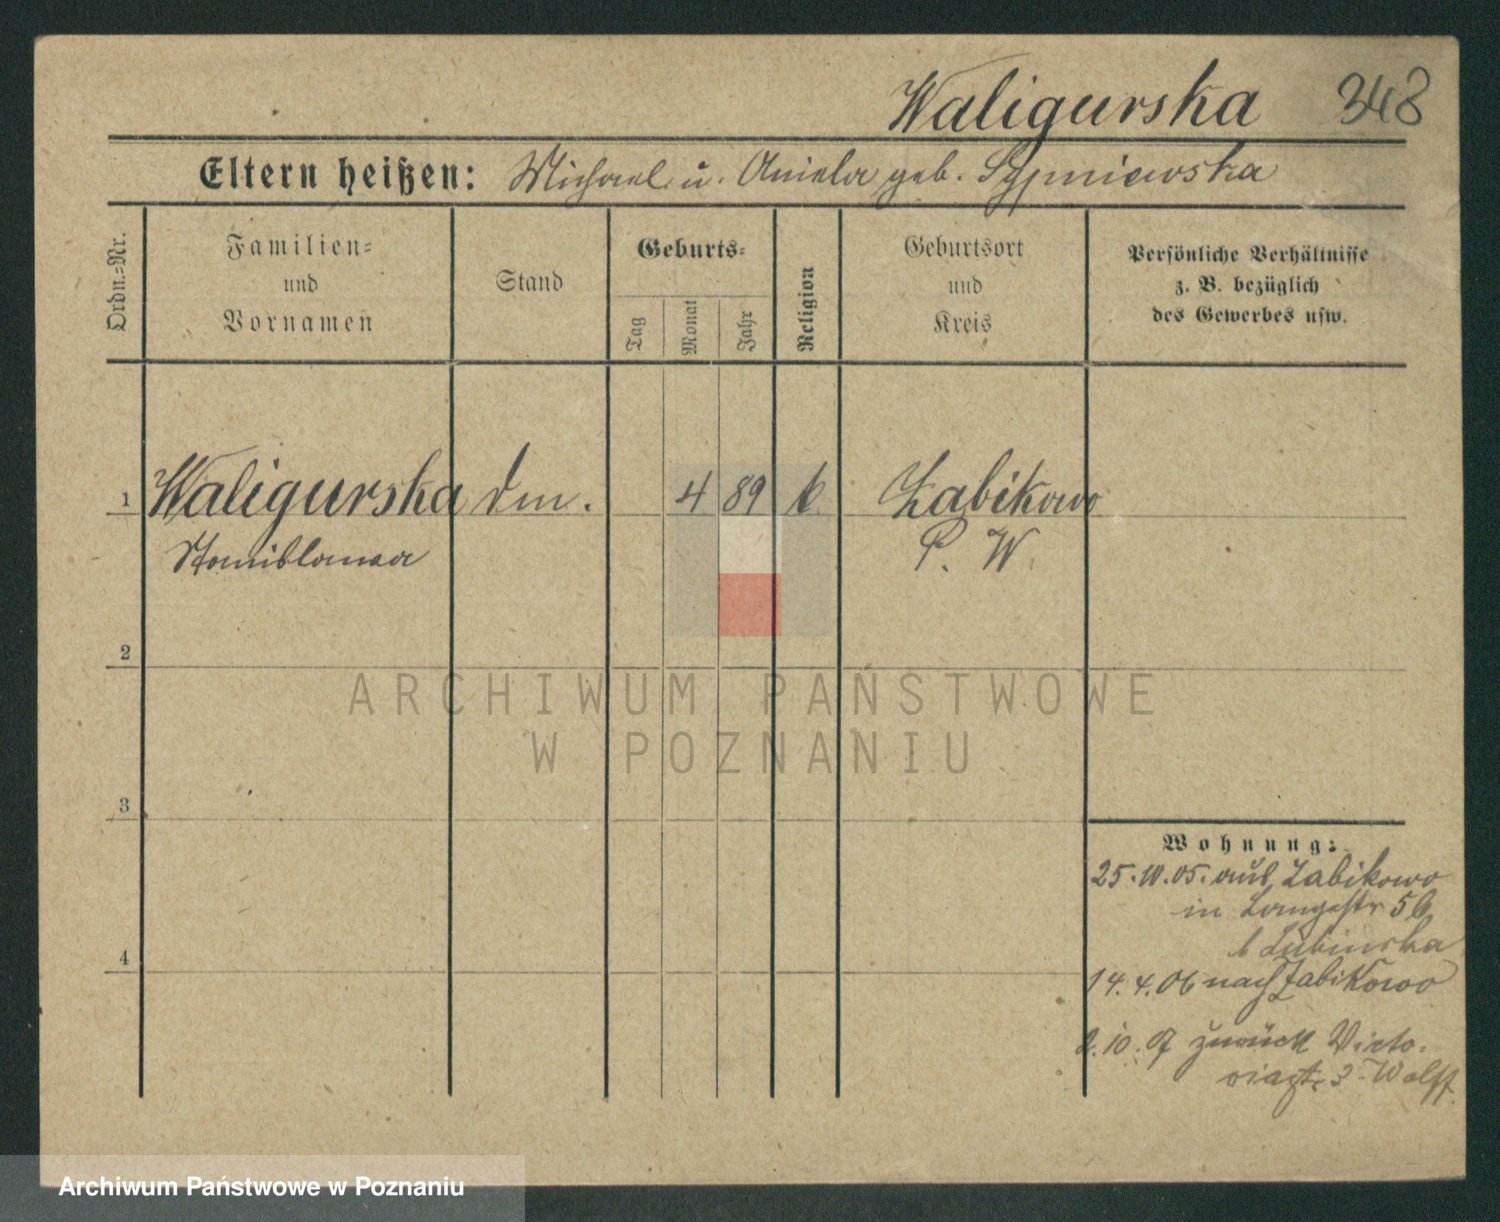 Waligurska 348
Eltern heißen: Michael u. Aniela geb. Sypniewska
Ordn.-Nr.
Familien-
und
Vornamen
Stand
Geburts-
Tag
Monat
Jahr
Religion
Geburtsort
und
Kreis
Persönliche Verhältnisse
z. B. bezüglich
des Gewerbes usw.
1 Waligurska 4 89 k Zabikowo
Stanislawa P. W.
2
ARCHIWUM PAŃSTWOWE
W POZNANIU
3
Wohnung:
25.10.05. aus Zabikowo
in Langestr 56
b Lubinska
4
14.4.06 nach Zabikowo
2.10.07 zurück Victo-
riastr. 3 Wolff
Archiwum Państwowe w Poznaniu